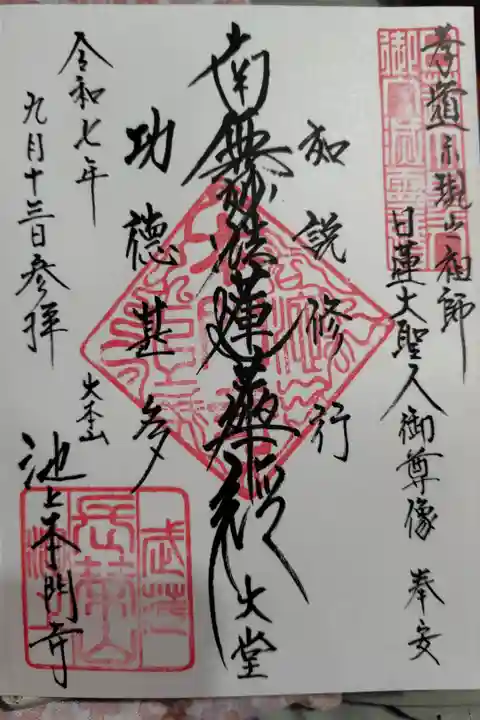 孝道示現之祖師
日蓮大聖人御尊像 奉安
如説修行
南無妙法蓮華経
大堂
功徳甚多
令和七年
九月十三日参拝
大本山
池上本門寺